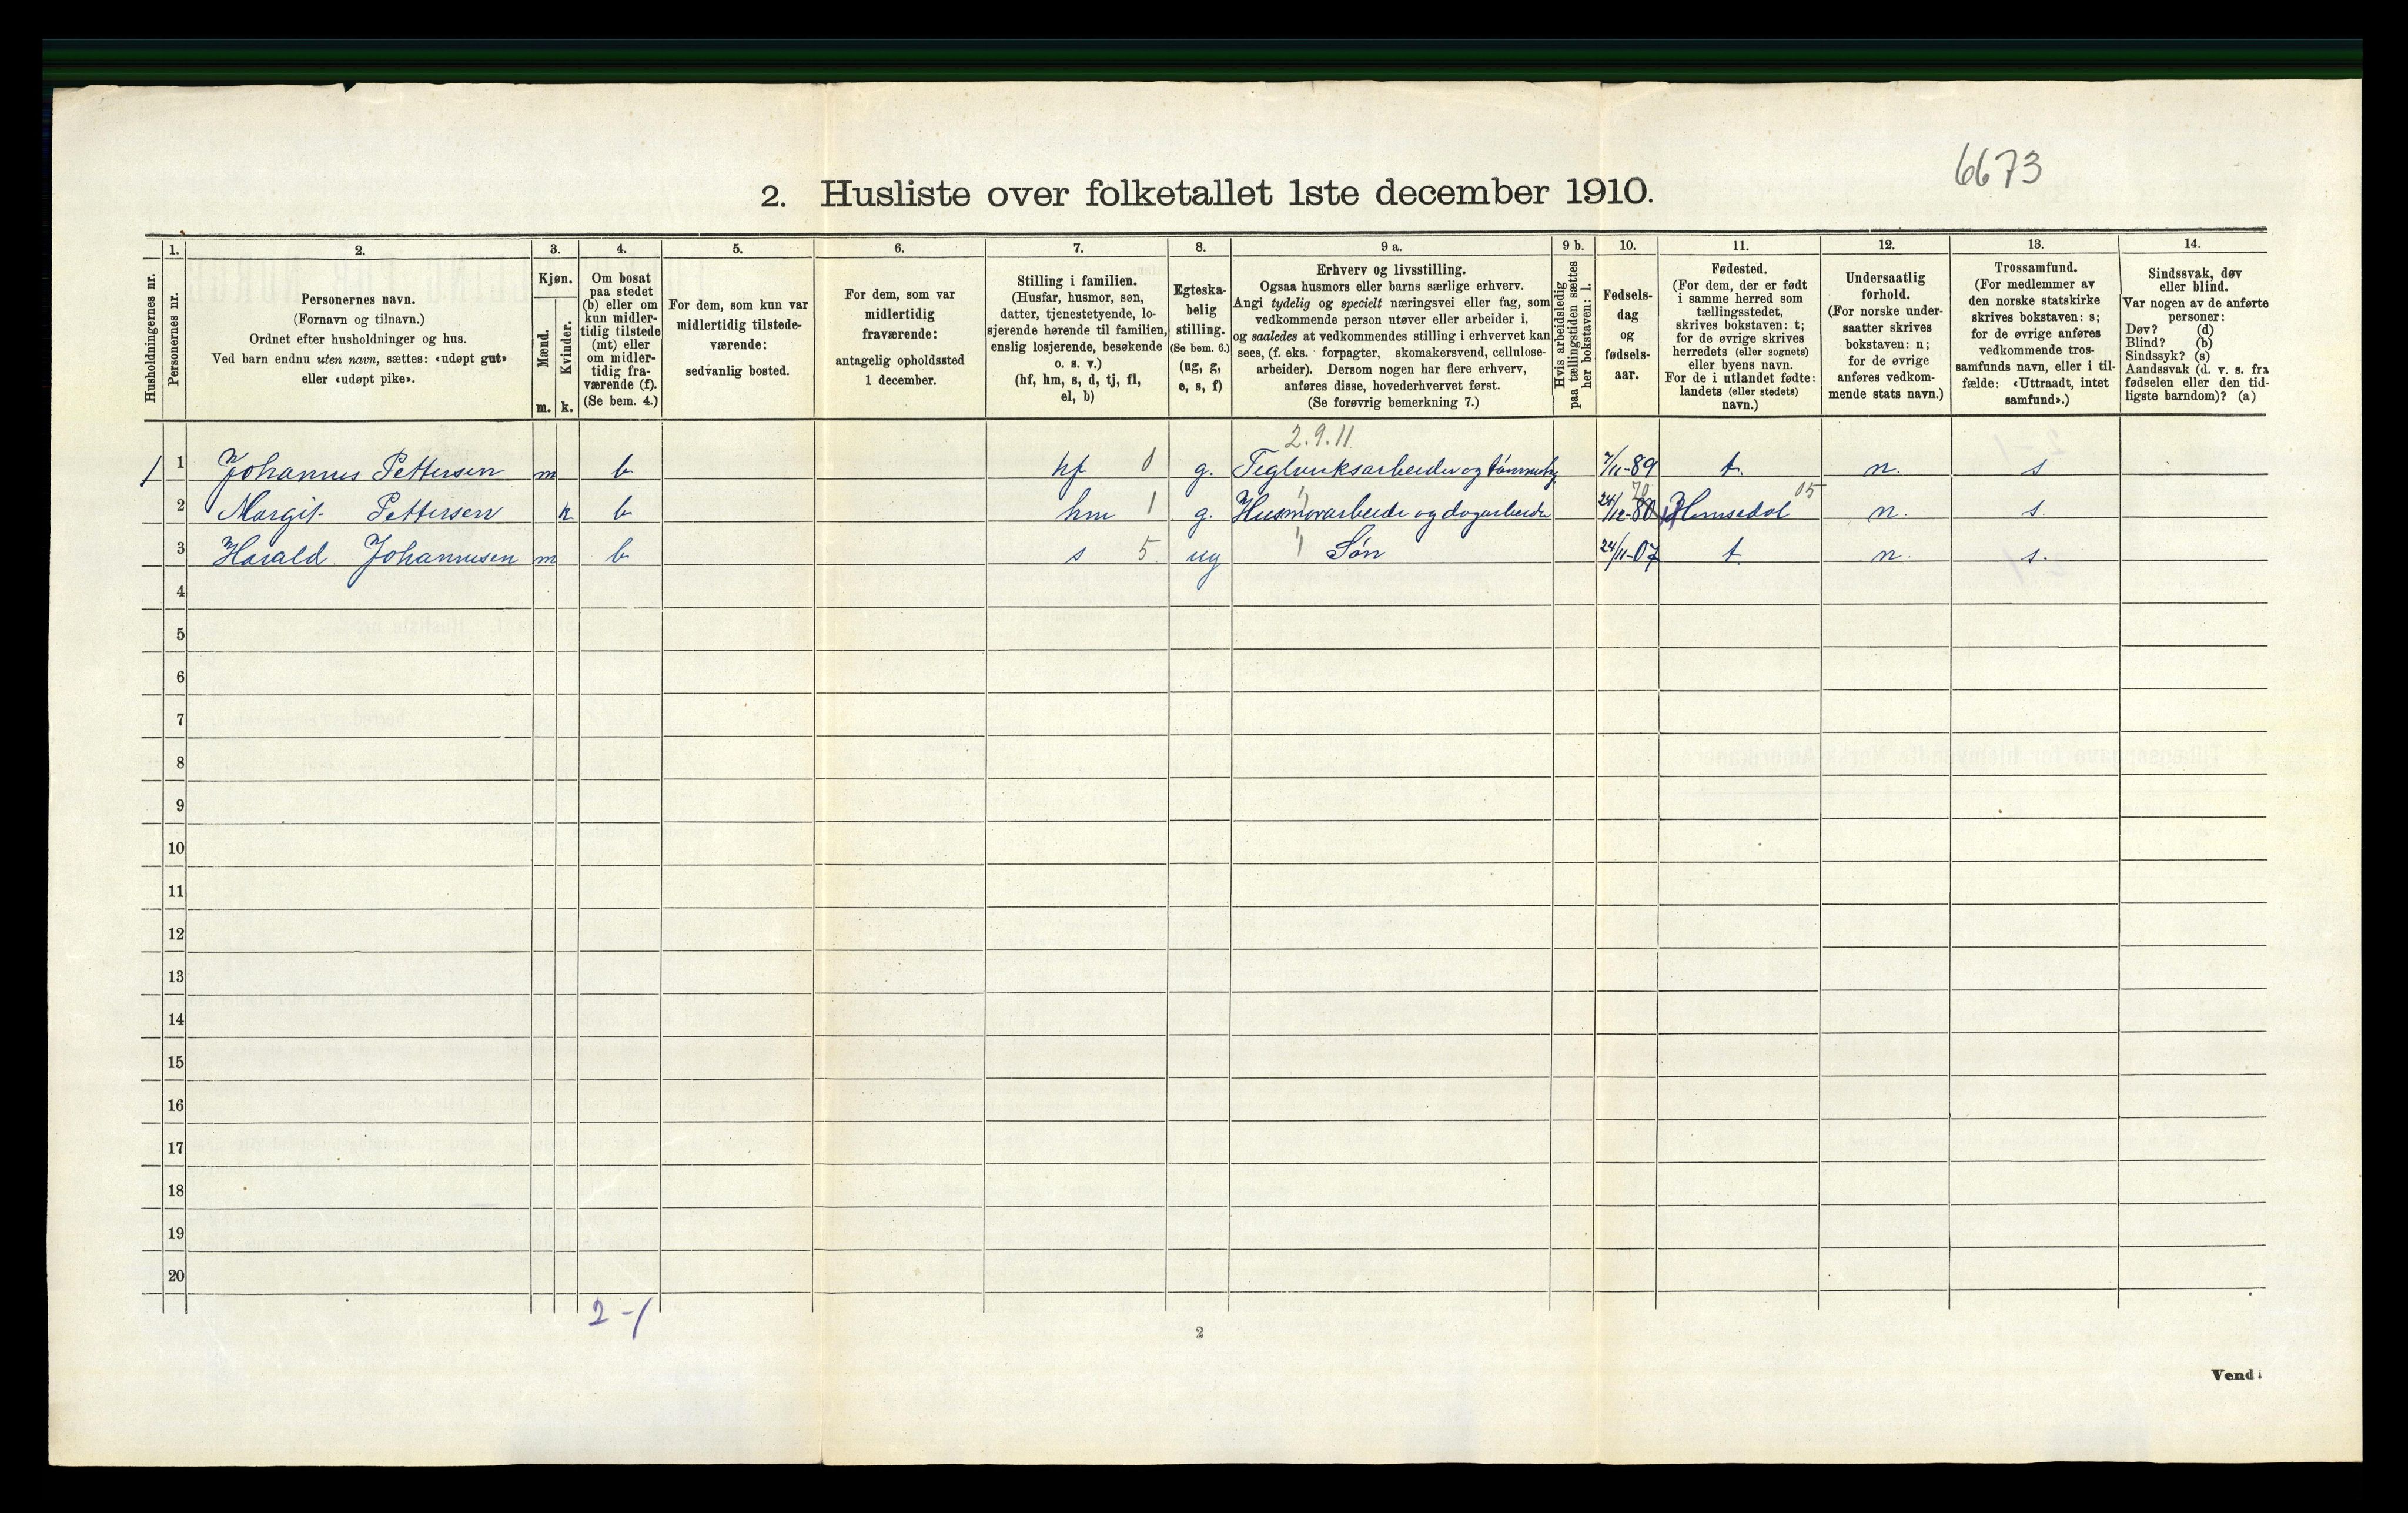 6673
2. Husliste over folketallet 1ste december 1910.
Husholdningernes nr.
1.
Personernes nr.
2.
Personernes navn.
(Fornavn og tilnavn.)
Ordnet efter husholdninger og hus.
Ved barn endnu uten navn, sættes: «udøpt gut»
eller «udøpt pike».
3.
Kjøn.
Mænd.
Kvinder.
m. k.
4.
Om bosat
paa stedet
(b) eller om
kun midler-
tidig tilstede
(mt) eller
om midler-
tidig fra-
værende (f).
(Se bem. 4.)
5.
For dem, som kun var
midlertidig tilstede-
værende:
sedvanlig bosted.
6.
For dem, som var
midlertidig
fraværende:
antagelig opholdssted
1 december.
7.
Stilling i familien.
(Husfar, husmor, søn,
datter, tjenestetyende, lo-
sjerende hørende til familien,
enslig losjerende, besøkende
o. s. v.)
(hf, hm, s, d, tj, fl,
el, b)
8.
Egteska-
belig
stilling.
(Se bem. 6.)
(ug, g,
e, s, f)
9 a.
Erhverv og livsstilling.
Ogsaa husmors eller barns særlige erhverv.
Angi tydelig og specielt næringsvei eller fag, som
vedkommende person utøver eller arbeider i,
og saaledes at vedkommendes stilling i erhvervet kan
sees, (f. eks. forpagter, skomakersvend, cellulose-
arbeider). Dersom nogen har flere erhverv,
anføres disse, hovederhvervet først.
(Se forøvrig bemerkning 7.)
9 b.
Hvis arbeidsledig
paa tællingstiden sættes
her bokstaven: l.
10.
Fødsels-
dag
og
fødsels-
aar.
11.
Fødested.
(For dem, der er født
i samme herred som
tællingsstedet,
skrives bokstaven: t;
for de øvrige skrives
herredets (eller sognets)
eller byens navn.
For de i utlandet fødte:
landets (eller stedets)
navn.)
12.
Undersaatlig
forhold.
(For norske under-
saatter skrives
bokstaven: n;
for de øvrige
anføres vedkom-
mende stats navn.)
13.
Trossamfund.
(For medlemmer av
den norske statskirke
skrives bokstaven: s;
for de øvrige anføres
vedkommende tros-
samfunds navn, eller i til-
fælde: «Uttraadt, intet
samfund».)
14.
Sindssvak, døv
eller blind.
Var nogen av de anførte
personer:
Døv? (d)
Blind? (b)
Sindssyk? (s)
Aandssvak (d. v. s. fra
fødselen eller den tid-
ligste barndom)? (a)
2.9.11
1 1 Johannes Pettersen m b hf 0 g. Teglverksarbeider og 7/11-89 t. n. s
70 05
2 Margit Pettersen k b hm 1 g. Husmorarbeide og dagarbeide 24/12-80 Hemsedal n. s.
3 Harald Johannesen m b s 5 ug " Søn 24/11-07 t. n. s.
4
5
6
7
8
9
10
11
12
13
14
15
16
17
18
19
20
2-1
2
Vend!